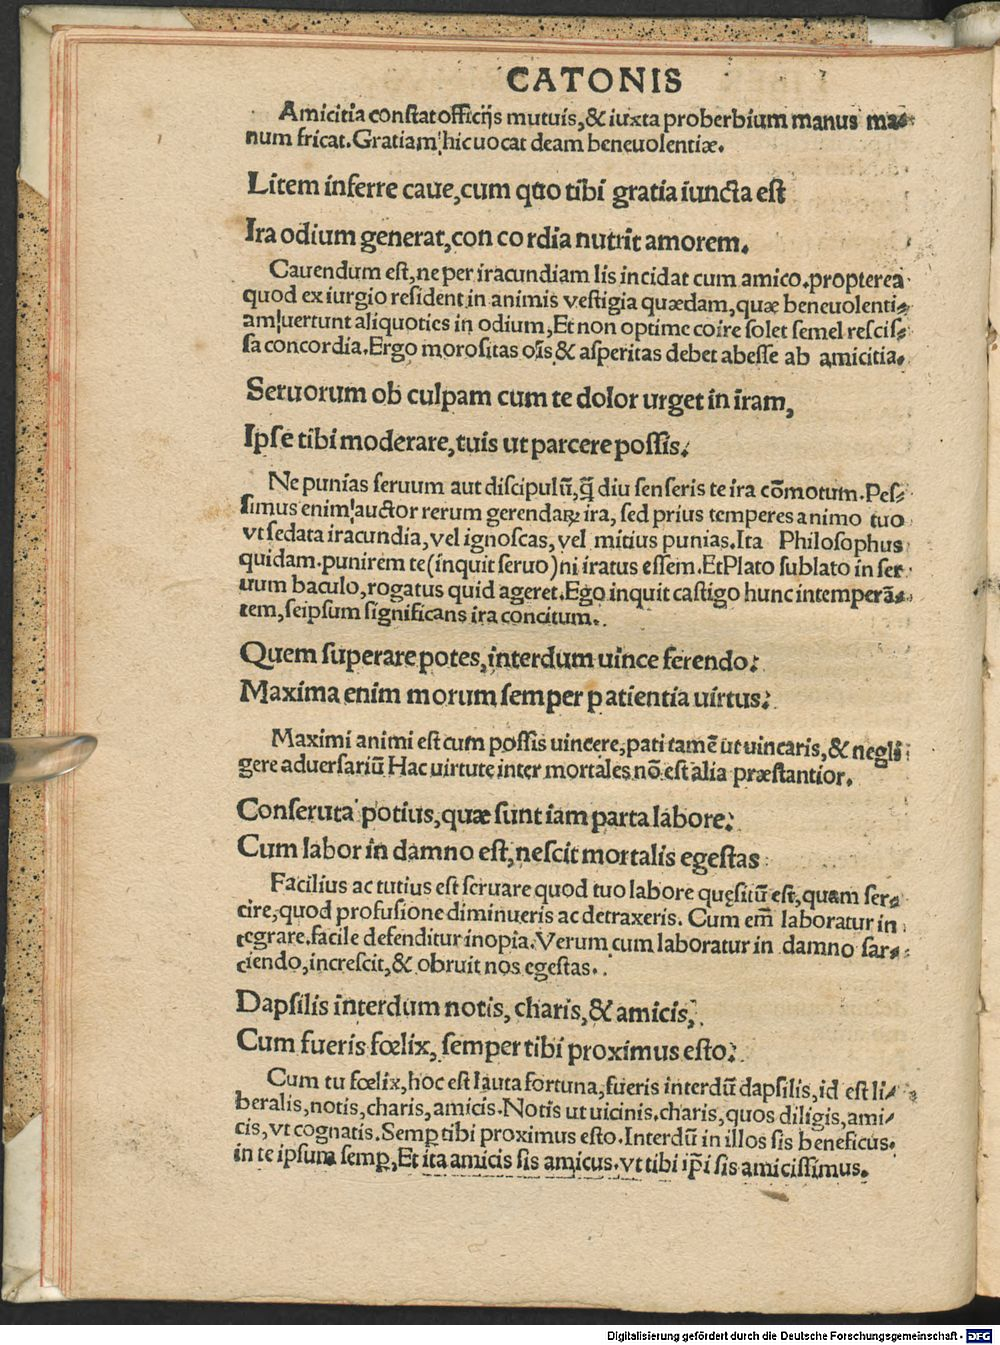 CATONIS
Amicitia constat officijs mutuis, & iuxta proberbium manus ma⸗
num fricat. Gratiam hic uocat deam beneuolentiæ.
Litem inferre caue, cum quo tibi gratia iuncta est
Ira odium generat, concordia nutrit amorem.
Cauendum est, ne per iracundiam lis incidat cum amico. propterea
quod ex iurgio resident in animis vestigia quædam, quæ beneuolenti⸗
am uertunt aliquoties in odium, Et non optime coire solet semel rescis⸗
sa concordia. Ergo morositas oīs & asperitas debet abesse ab amicitia.
Seruorum ob culpam cum te dolor urget in iram,
Ipse tibi moderare, tuis ut parcere possis.
Ne punias seruum aut discipulū, q̄ diu senseris te ira cōmotum. Pes⸗
simus enim auctor rerum gerendaꝝ ira, sed prius temperes animo tuo
vt sedata iracundia, vel ignoscas, vel mitius punias. Ita Philosophus
quidam. punirem te (inquit seruo) ni iratus essem. Et Plato sublato in ser
uum baculo, rogatus quid ageret. Ego inquit castigo hunc intemperā⸗
tem, seipsum significans ira concitum.
Quem superare potes, interdum uince ferendo:
Maxima enim morum semper patientia uirtus:
Maximi animi est cum possis uincere, pati tamē ut uincaris, & negli
gere aduersariū Hac uirtute inter mortales nō est alia præstantior.
Conseruta potius, quæ sunt iam parta labore:
Cum labor in damno est, nescit mortalis egestas
Facilius ac tutius est seruare quod tuo labore quęsitū est, quam ser⸗
cire, quod profusione diminueris ac detraxeris. Cum em̄ laboratur in
tegrare. facile defenditur inopia. Verum cum laboratur in damno sar⸗
ciendo, increscit, & obruit nos egestas.
Dapsilis interdum notis, charis, & amicis,
Cum fueris fœlix, semper tibi proximus esto:
Cum tu fœlix, hoc est lauta fortuna, fueris interdū dapsilis, id est li⸗
beralis, notis, charis, amicis. Notis ut uicinis. charis, quos diligis, ami⸗
cis, vt cognatis. Semꝑ tibi proximus esto. Interdū in illos sis beneficus.
in te ipsum semꝑ, Et ita amicis sis amicus. vt tibi ip̄i sis amicissimus.
Digitalisierung gefördert durch die Deutsche Forschungsgemeinschaft - DFG